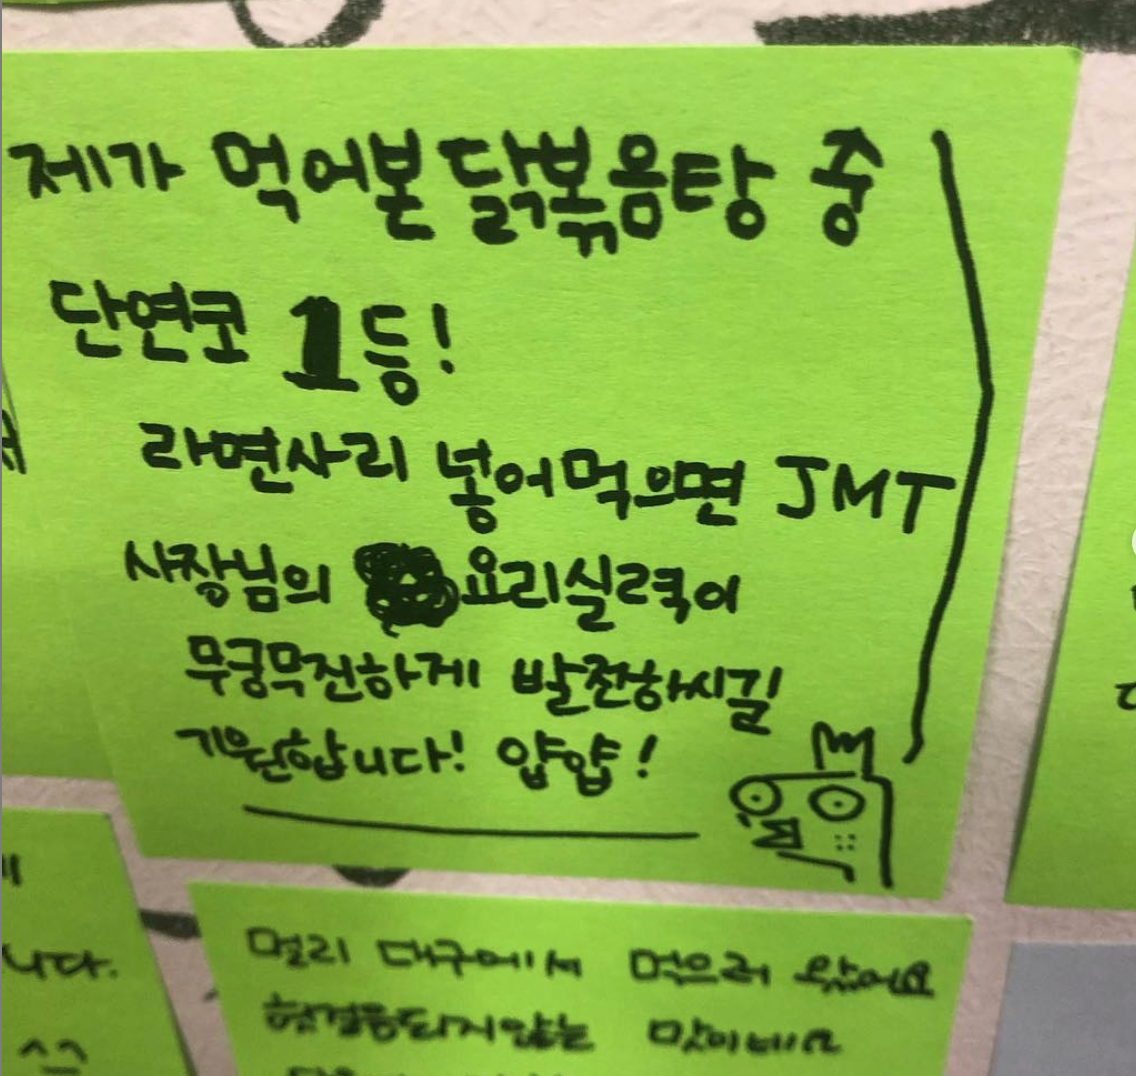 제가 먹어본 닭볶음탕 중
단연코 1등!
라면사리 넣어먹으면 JMT
사장님의 요리실력이
무궁무진하게 발전하시길
기원합니다! 얍얍!
니다.
^^
멀리 대구에서 먹으러 왔어요
헛걸음되지않는 맛이네요